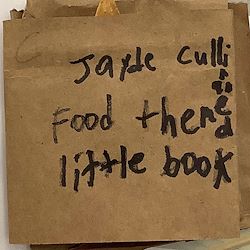 Jayde Cullinane
Food themed
little book